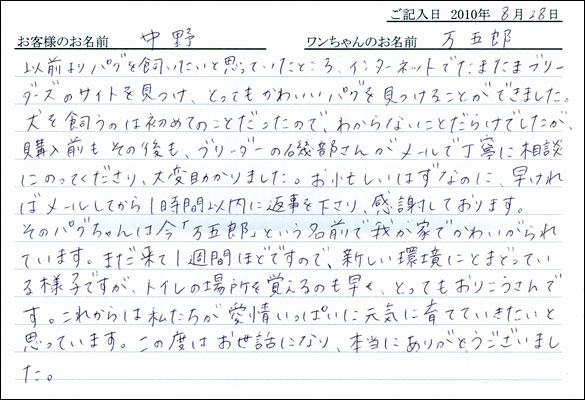 ご記入日 2010年 8月 28日
お客様のお名前 中野 ワンちゃんのお名前 万五郎
以前よりパグを飼いたいと思っていたところ、インターネットでたまたまブリー
ダーズのサイトを見つけ、とってもかわいいパグを見つけることができました。
犬を飼うのは初めてのことだったので、わからないことだらけでしたが、
購入前もその後も、ブリーダーの磯部さんがメールで丁寧に相談
にのってくださり、大変助かりました。お忙しいはずなのに、早けれ
ばメールしてから1時間以内に返事を下さり、感謝しております。
そのパグちゃんは今「万五郎」という名前で我が家でかわいがられ
ています。まだ来て1週間ほどですので、新しい環境にとまどってい
る様子ですが、トイレの場所を覚えるのも早く、とってもおりこうさんで
す。これからは私たちが愛情いっぱいに元気に育てていきたいと
思っています。この度はお世話になり、本当にありがとうございまし
た。